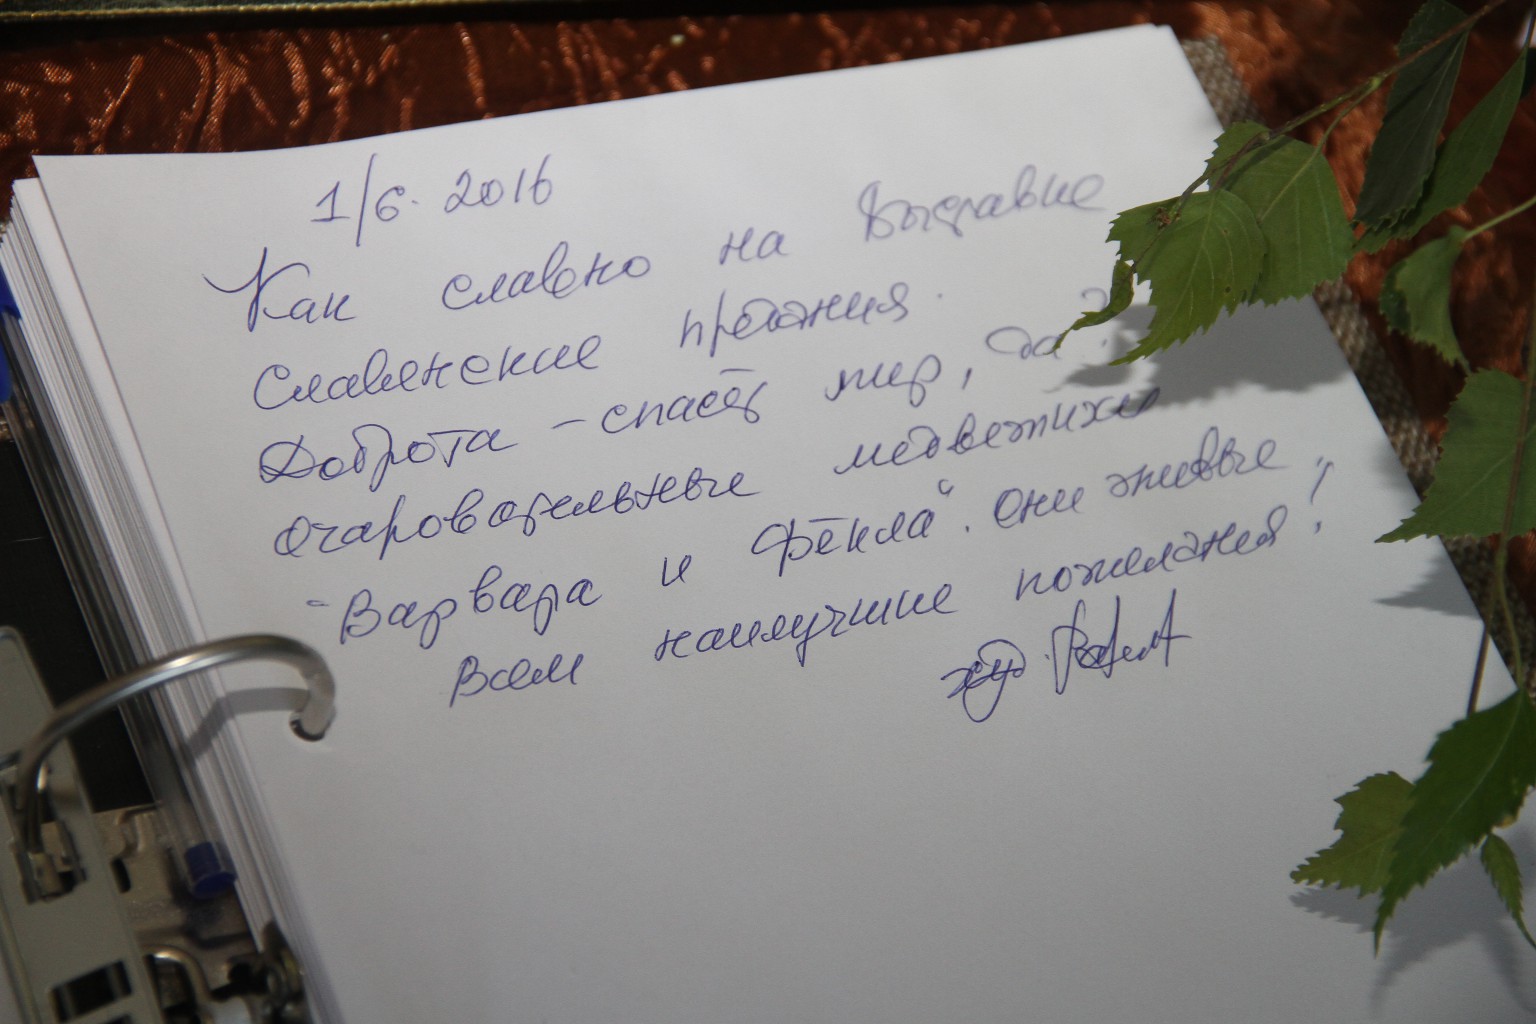 1/6. 2016
Как славно на выставке
Славянские предания.
Доброта – спасёт мир, да?
очаровательные медвежихи
"Варвара и Фёкла". они живые!
Всем наилучшие пожелания!
худ.